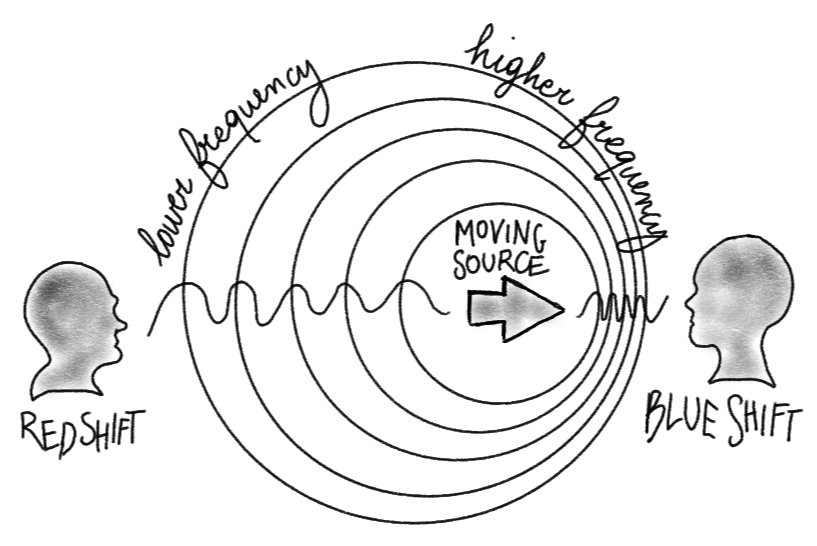 lower frequency
higher frequency
MOVING
SOURCE
REDSHIFT
BLUE SHIFT